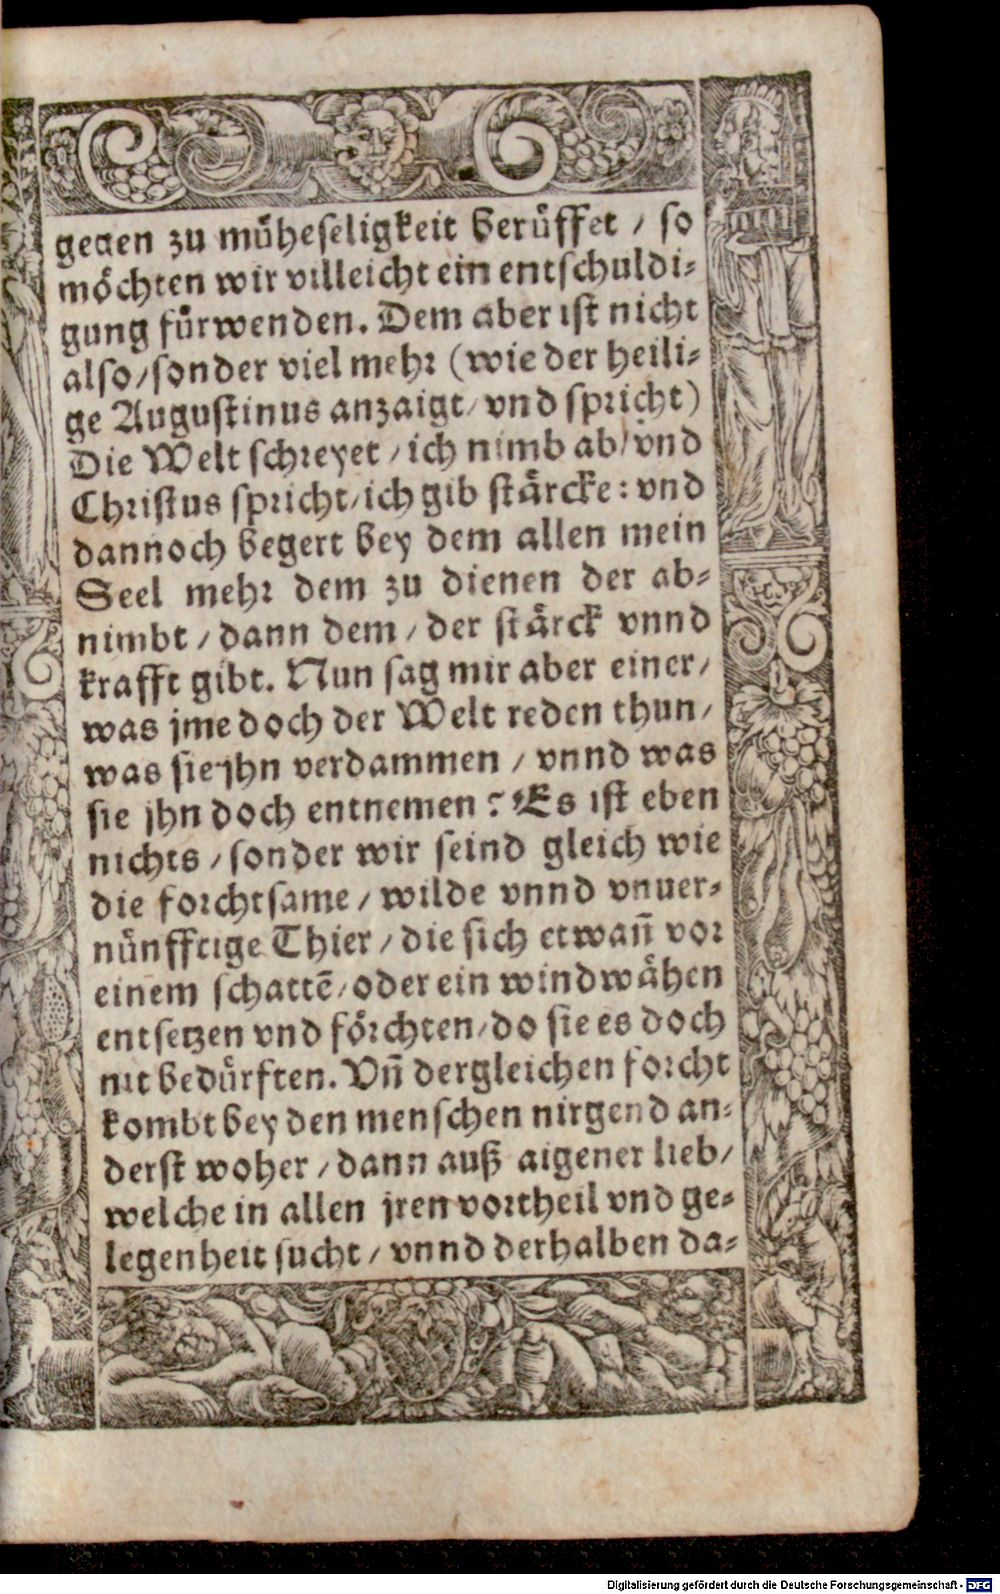 gegen zu muͤheseligkeit beruͤffet / so
moͤchten wir villeicht ein entschuldi⸗
gung fuͤrwenden. Dem aber ist nicht
also / sonder viel mehr (wie der heili⸗
ge Augustinus anzaigt / vnd spricht)
Die Welt schreyet / ich nimb ab / vnd
Christus spricht / ich gib staͤrcke: vnd
dannoch begert bey dem allen mein
Seel mehr dem zu dienen der ab⸗
nimbt / dann dem / der staͤrck vnnd
krafft gibt. Nun sag mir aber einer /
was jme doch der Welt reden thun /
was sie jhn verdammen / vnnd was
sie jhn doch entnemen? Es ist eben
nichts / sonder wir seind gleich wie
die forchtsame / wilde vnnd vnuer⸗
nuͤnfftige Thier / die sich etwañ vor
einem schattē / oder ein windwaͤhen
entsetzen vnd foͤrchten / do sie es doch
nit beduͤrften. Vñ dergleichen forcht
kombt bey den menschen nirgend an⸗
derst woher / dann auß aigener lieb /
welche in allen jren vortheil vnd ge⸗
legenheit sucht / vnnd derhalben da⸗
Digitalisierung gefördert durch die Deutsche Forschungsgemeinschaft - DFG